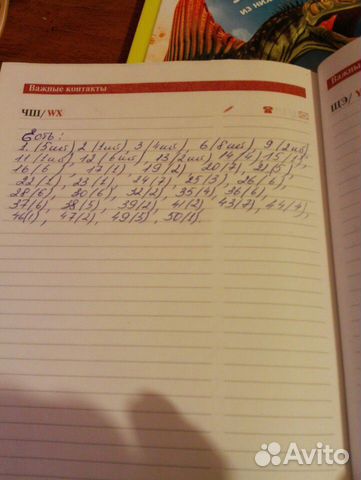 ИЗ НИХ
Важные контакты
Важны
ЧШ/ WX
ШЭ/ Y
Есть:
1. (5шт) 2 (1шт), 3 (4шт), 6 (8шт), 9 (2шт)
11 (1шт), 12 (6шт), 13 (2шт) 14 (4), 15 (1),
16 (6), 17 (1), 19 (2), 20 (7), 21 (5),
22 (2), 23 (2), 24 (7), 25 (3), 26 (6),
28 (6), 30 (6), 32 (2), 35 (4), 36 (6),
37 (6), 38 (5), 39 (2), 41 (2), 43 (7), 44 (7),
46 (1), 47 (2), 49 (5), 50 (1).
Avito